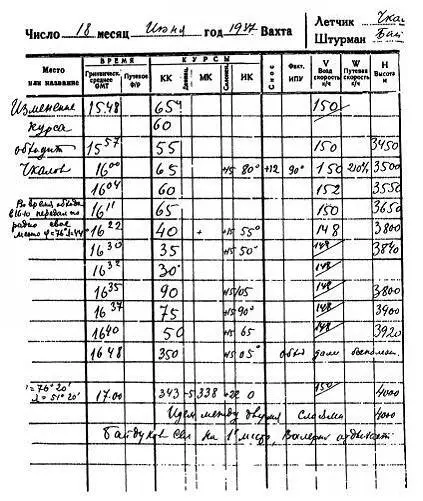 Число 18 месяц Июня год 1937 Вахта
Летчик Чка
Штурман Бай
Место или название
ВРЕМЯ
Гринвическ. среднее GMT
Путевое Ф/Р
КУРСЫ
КК
Девиац.
МК
Склонен.
ИК
Снос
Факт. ИПУ
V Возд скорость к/ч
W Путевая скорость к/ч
H Высота м
Изменение 15.48 65 150
курса 60
обходит 15 57 55 150 3450
Чкалов 16 00 65 +15 80° +12 90° 150 210% 3500
16 04 60 152 3550
Во время обхода 16 11 65 150 3650
в 16 10 передал по
радио свое 16 22 40 + +15 55° 148 3800
место φ=76°
16 30 35 +15 50° 148 3840
16 32 30 148
16 35 90 +15 105 148 3800
16 37 75 +15 90° 148 3900
16 40 50 +15 65 148 3920
16 48 350 +15 05°
=76° 20' 17.00 343 -5 338 +22 0 150 4000
λ=51° 20'
Идем между двумя слоями 4000
Байдуков сел на 1е место, Валерий отдыхает